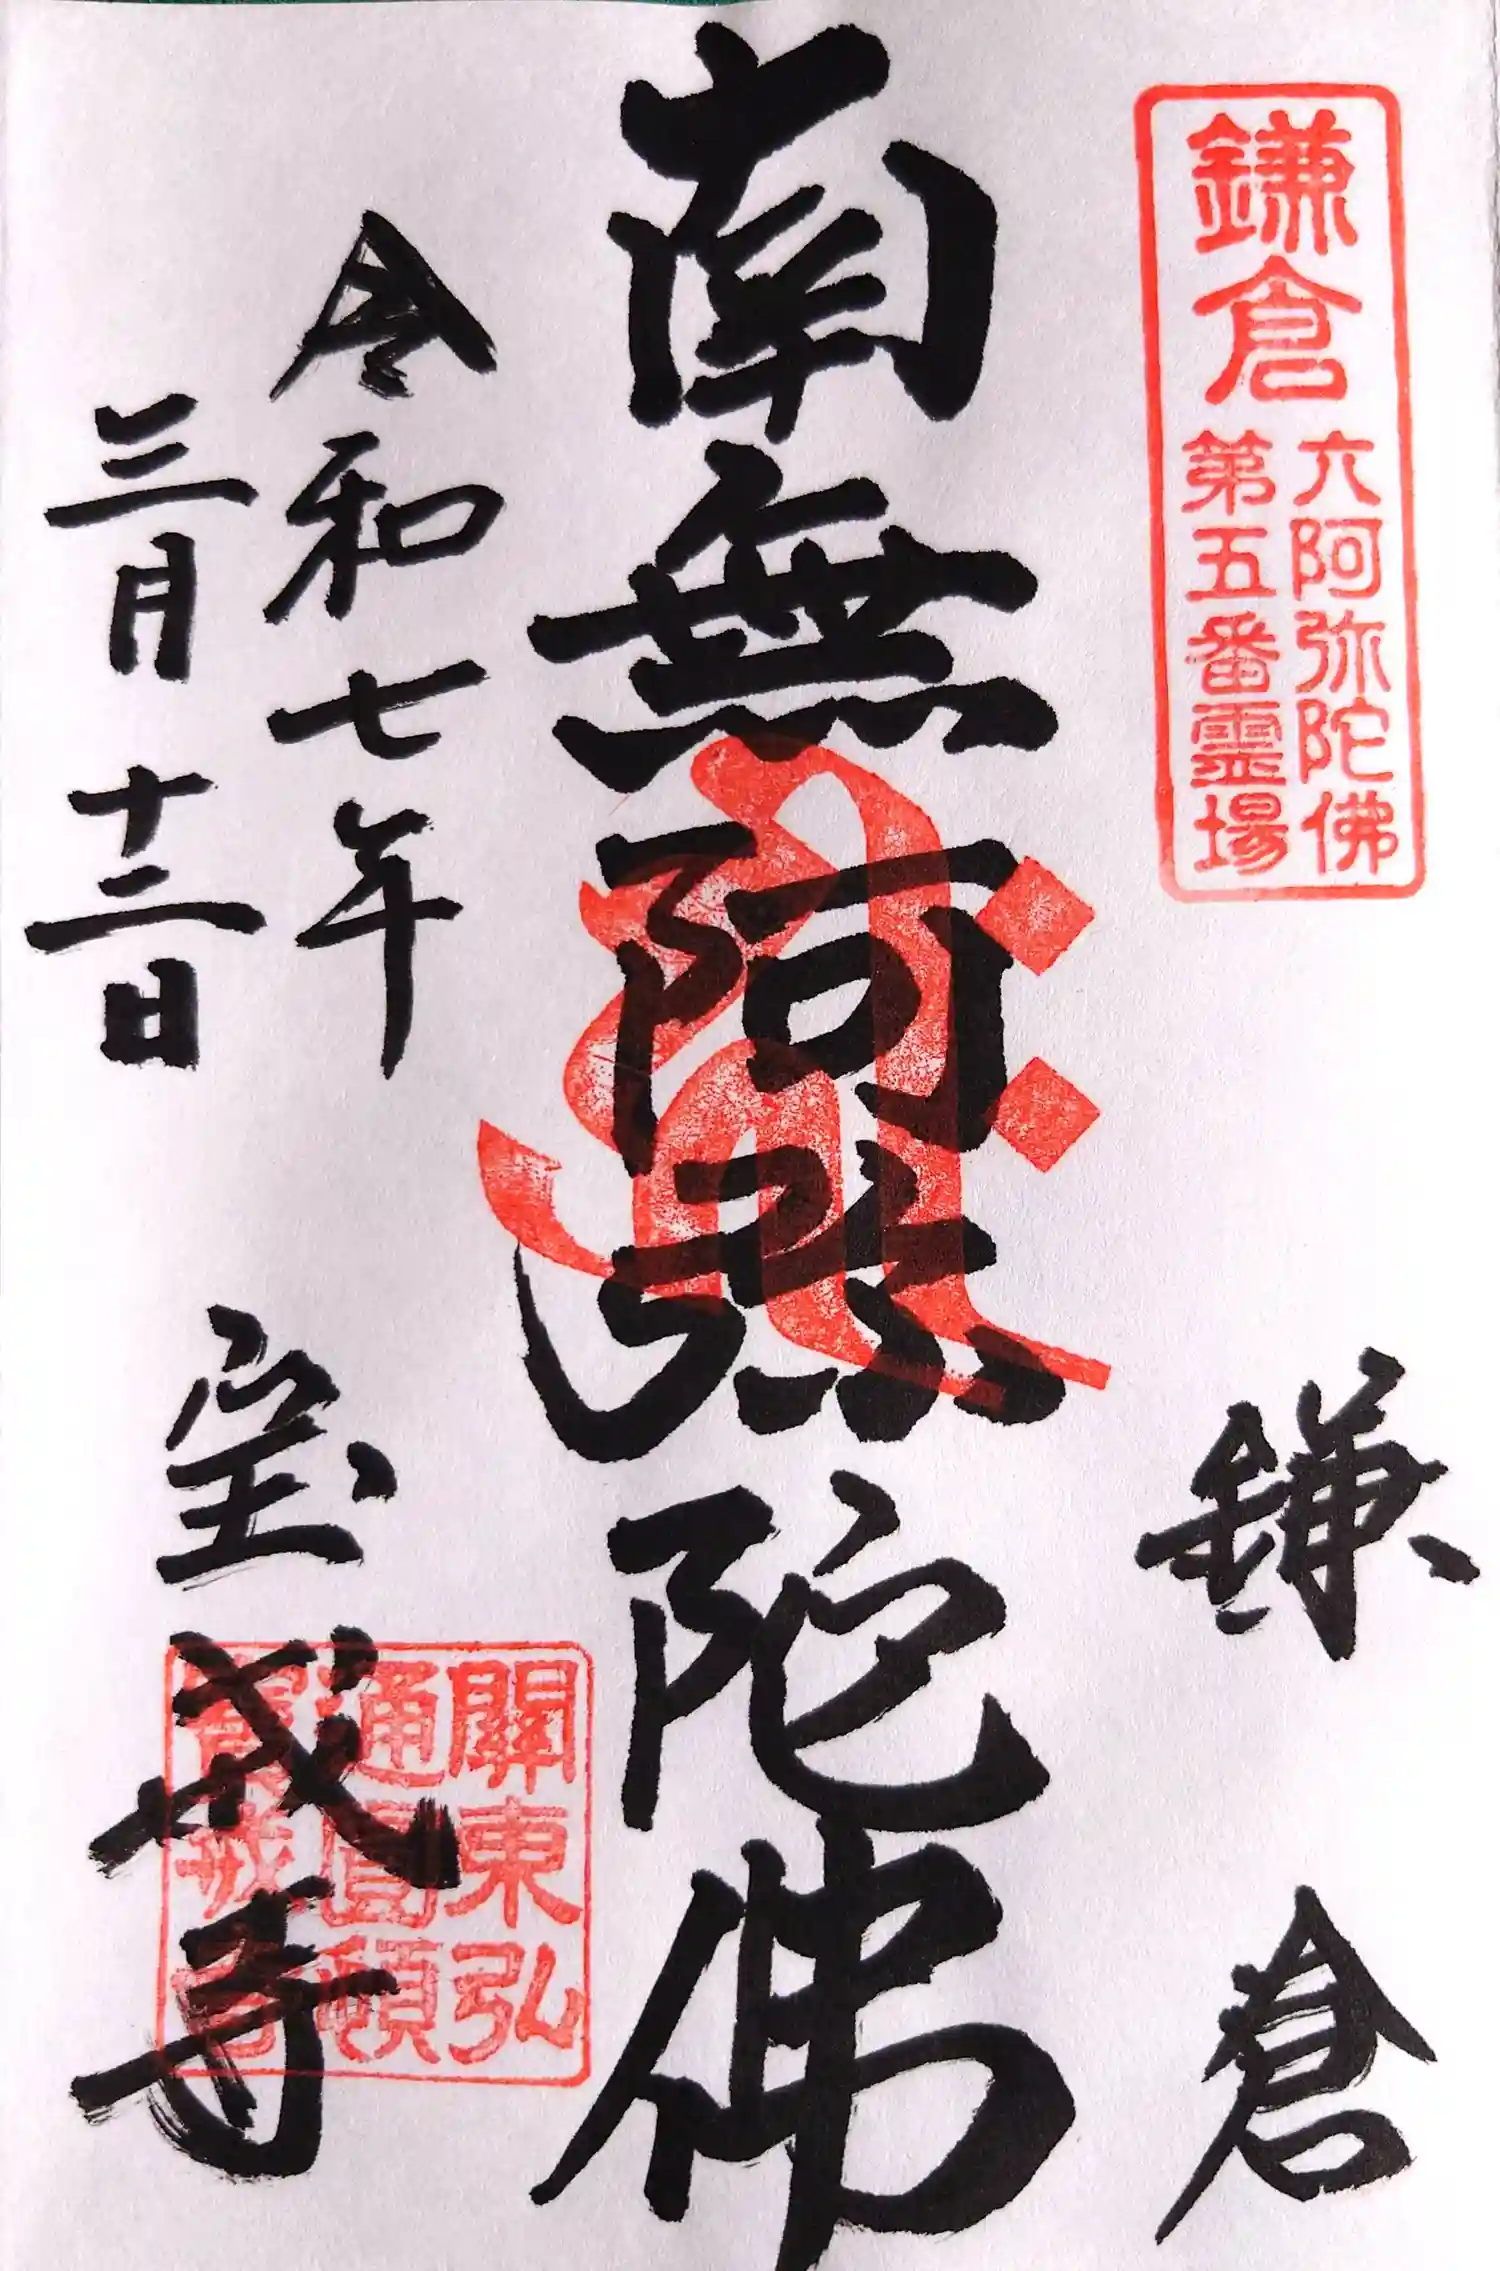 鎌倉
六阿弥陀佛
第五番霊場
鎌倉
南無阿弥陀佛
令和七年
三月十二日
宝戒寺
關東弘
通圓頓
寶戒寺